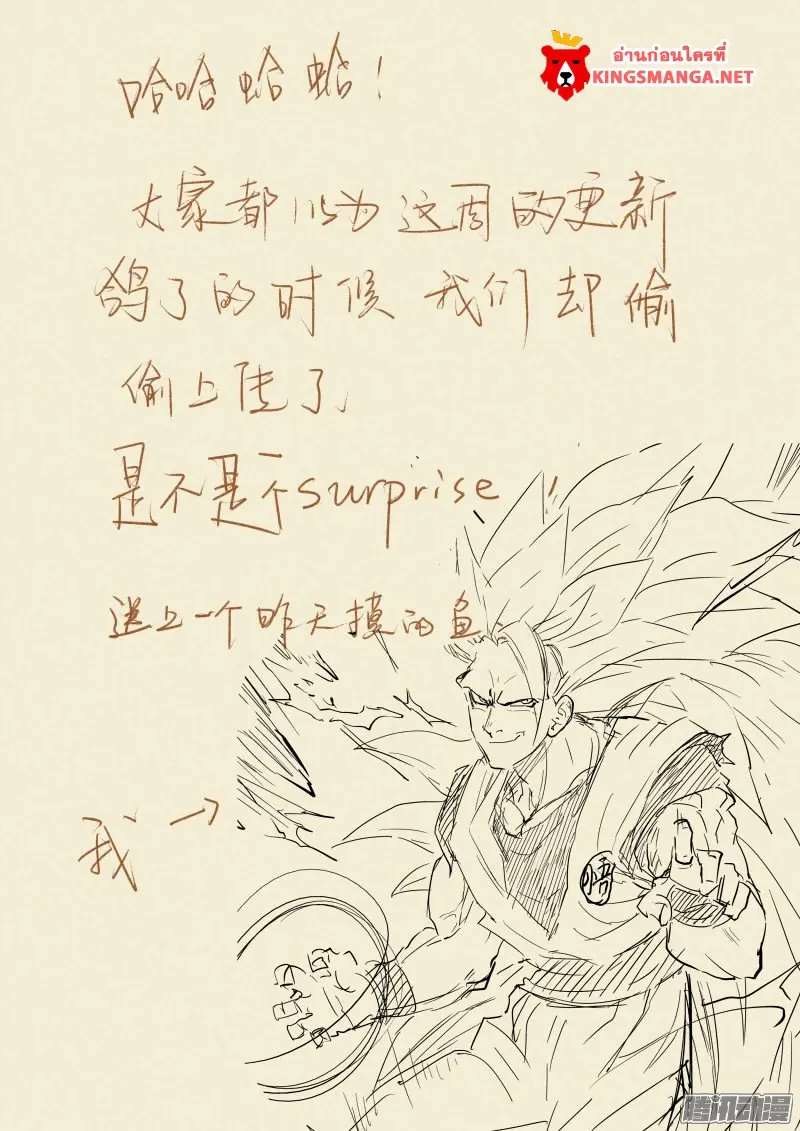 อ่านก่อนใครที่
KINGSMANGA.NET
哈哈蛤蛤!
大家都以为这周的更新
鸽了的时候 我们却偷
偷上传了,
是不是一个surprise!
送上一个昨天摸的鱼、
我→
悟
腾讯动漫